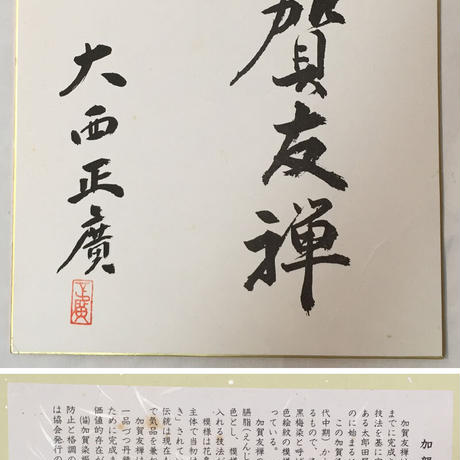 賀友禅
大西正廣
正廣
加賀
加賀友禅は
までに完成
技法を基に
ある太郎田
のに始まる
この加賀
代中期、か
るもので、
黒梅染と呼ば
色絵紋の模
っている。
加賀友禅の
臙脂(えんじ
色とし、模様
入れる技法が
模様は花
主体で当初
き」されてい
伝統は現在も
て気品を兼ね
加賀友禅
一品づつ丹
ために完成
価値的存在が
(協)加賀染振
防止と格調の
は協会発行の